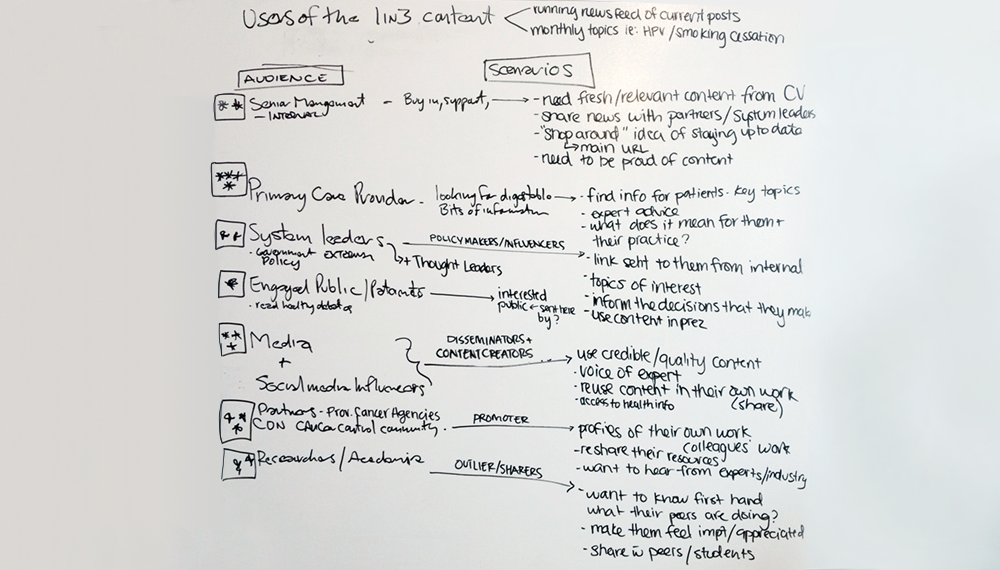 Uses of the 1IN3 content
running news feed of current posts
monthly topics ie: HPV/smoking cessation
AUDIENCE
SCENARIOS
** Senior Management - Buy in, support,
- INTERNAL
- need fresh/relevant content from CV
- share news with partners/System leaders
- "shop around" idea of staying up to date
main URL
- need to be proud of content
***
*
Primary Care Provider - looking for digestable
Bits of information
- find info for patients - key topics
- expert advice
- what does it mean for them +
their practice?
** System leaders
· Government EXTERNAL
POLICY
POLICYMAKERS/INFLUENCERS
+ Thought Leaders
- link sent to them from internal
- topics of interest
- inform the decisions that they make
- use content in prez
* Engaged Public/Patients
· read healthy debate
interested
public ← sent here
by?
**
*
Media
+
Social media Influencers
DISSEMINATORS +
CONTENT CREATORS
- use credible/quality content
· voice of expert
· reuse content in their own work
(share)
· access to health info
**
*
Partners - Prov. Cancer Agencies
CON cancer control community.
PROMOTER
- profiles of their own work
colleagues' work
- reshare their resources
- want to hear from experts/industry
** Researchers/Academia
OUTLIER/SHARERS
- want to know first hand
what their peers are doing?
- make them feel impt/appreciated
- share w peers/students